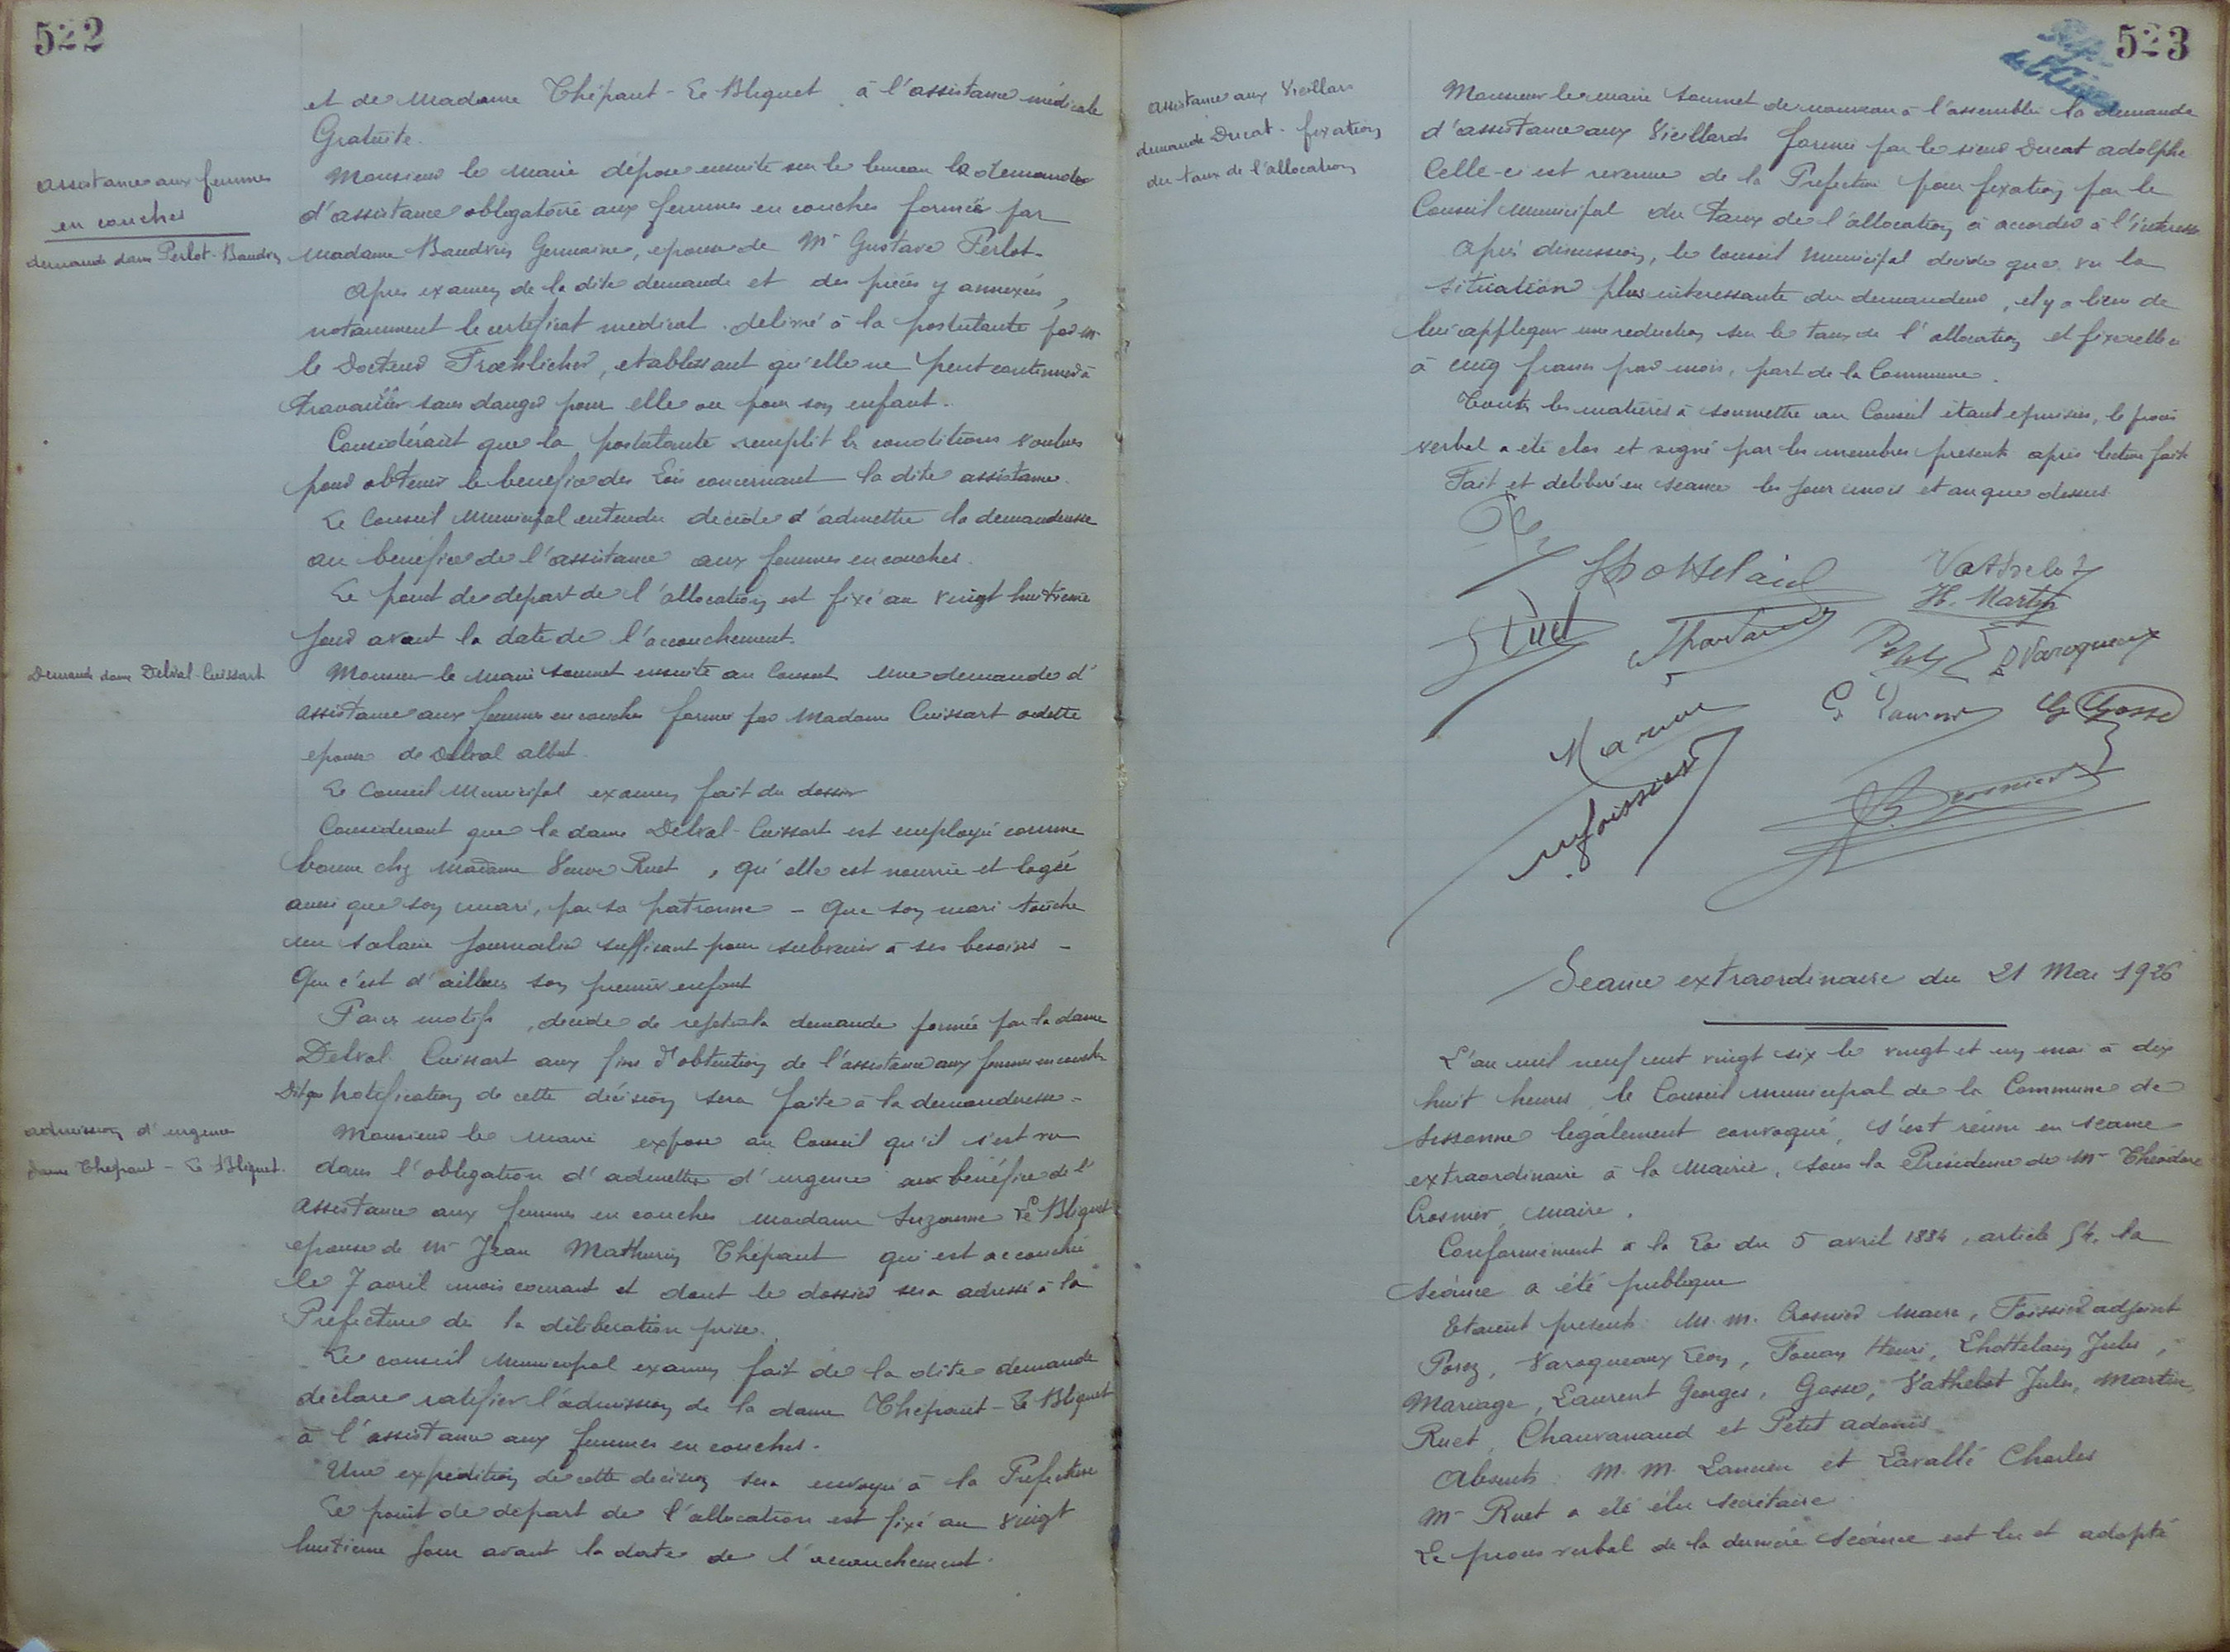 522
et de Madame Thépaut - Le Bliguet à l'assistance médicale
Gratuite.
assistance aux femmes
en couches
demande dame Perlot-Baudry
Monsieur le Maire dépose ensuite sur le bureau la demande
d'assistance obligatoire aux femmes en couches formée par
Madame Germaine, epouse de Mr Gustave Perlot.
Apres examen de la dite demande et des pièces y annexées,
notamment le certificat medical delivré à la postulante par Mr
le Docteur Froehlicher, etablissant qu'elle ne peut continuer à
travailler sans danger pour elle ou pour son enfant.
Considérant que la postulante remplit les conditions voulues
pour obtenir le benefice des Lois concernant la dite assistance.
Le Conseil Municipal entendu decide d'admettre la demanderesse
au benefice de l'assistance aux femmes en couches.
Le point de depart de l'allocation est fixé au vingt huitieme
jour avant la date de l'accouchement.
Demande dame Delval-Cuissart
Monsieur le Maire soumet ensuite au Conseil une demande d'
assistance aux femmes en couches formée par Madame Cuissart odette
epouse de Delval albert.
Le Conseil Municipal examen fait du dossier
Considerant que la dame Delval-Cuissart est employée comme
bonne chez Madame Veuve Ruet, qu'elle est nourrie et logée
ainsi que son mari, par sa patronne - Que son mari touche
un salaire journalier suffisant pour subvenir à ses besoins -
Que c'est d'ailleurs son premier enfant
Par ces motifs, decide de rejeter la demande formée par la dame
Delval Cuissart aux fins d'obtention de l'assistance aux femmes en couches
Dit que notification de cette décision sera faite à la demanderesse -
admission d'urgence
dame Thepaut - Le Bliguet.
Monsieur le Maire expose au Conseil qu'il s'est vu
dans l'obligation d'admettre d'urgence aux bénéfice de l'
assistance aux femmes en couches Madame Suzanne Le Bliguet
epouse de Mr Jean Mathurin Thépaut qui est accouchée
le 7 avril mois courant et dont le dossier sera adressé à la
Prefecture de la déliberation prise.
Le conseil Municipal examen fait de la dite demande
declare ratifier l'admission de la dame Thepaut - Le Bliguet
à l'assistance aux femmes en couches.
Une expédition de cette decision sera envoyée à la Prefecture
Le point de depart de l'allocation est fixé au vingt
huitieme jour avant la date de l'accouchement.
523
assistance aux Vieillards
demande Ducat - fixation
du taux de l'allocation
Monsieur le maire soumet de nouveau à l'assemblée la demande
d'assistance aux Vieillards formée par le sieur Ducat adolphe
Celle-ci est revenue de la Prefecture pour fixation par le
Conseil Municipal du taux de l'allocation à accorder à l'interessé
Après discussion, le Conseil Municipal decide que vu la
situation plus interessante du demandeur, il y a lieu de
lui appliquer une reduction sur le taux de l'allocation et fixe celle-ci
à cinq francs par mois, part de la Commune.
Toutes les matières à soumettre au Conseil étant epuisées, le procès
verbal a été clos et signé par les membres presents après lecture faite
Fait et deliberé en seance les jour mois et an que dessus.
Vathelot
H. Martin
L Varoqueaux
G Gosse
Seance extraordinaire du 21 Mai 1926
L'an mil neuf cent vingt six le vingt et un mai à dix
huit heures, le Conseil Municipal de la Commune de
Sissonne légalement convoqué, s'est réuni en seance
extraordinaire à la Mairie, sous la Présidence de Mr Théodore
Crosnier, maire.
Conformément à la Loi du 5 avril 1884, article 54, la
séance a été publique
Etaient présents: M.M. Crosnier Maire, Foissier adjoint
Varoqueaux Léon, Henri, Lhottelain Jules,
Mariage, Laurent Georges, Gosse, Vathelot Jules, Martin,
Ruet, Chauvanaud et Petit adonis
Absents: M.M. et Lavallé Charles
Mr Ruet a été élu secrétaire
Le proces verbal de la derniere séance est lu et adopté